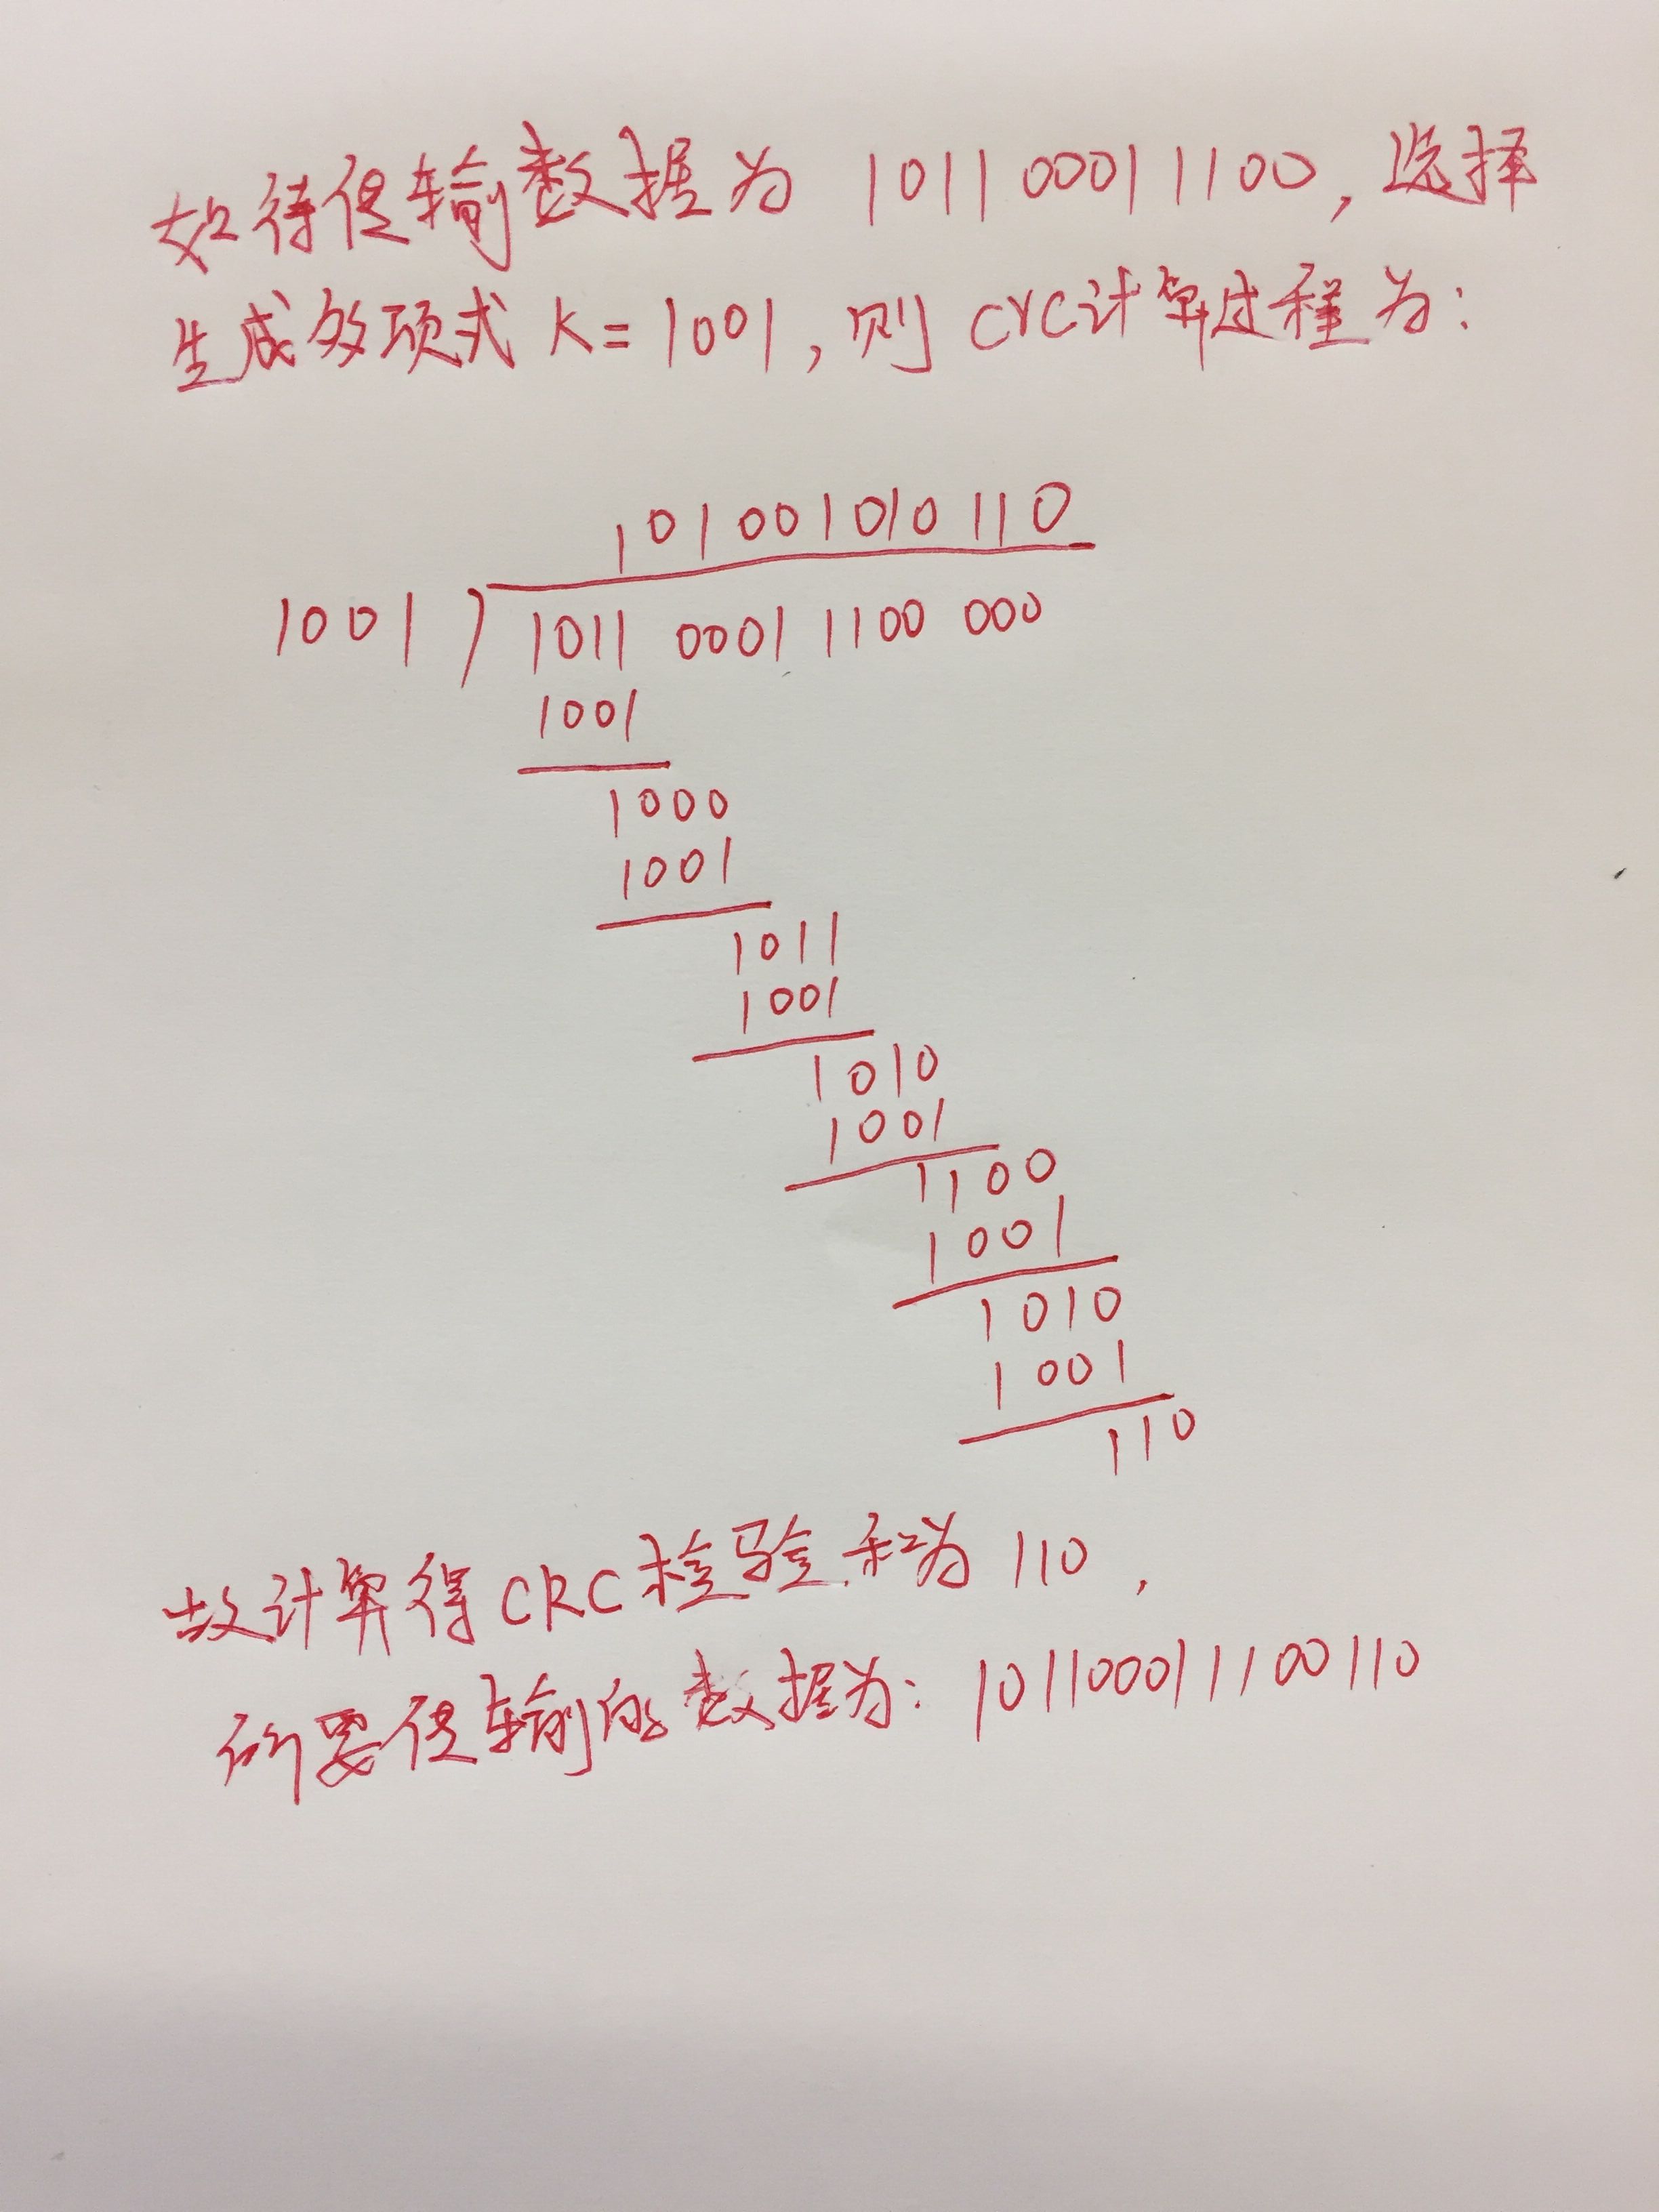 如待传输数据为 1011 0001 1100, 选择
生成多项式 K=1001, 则 CYC计算过程为:
101001010110
1001 ) 1011 0001 1100 000
1001
1000
1001
1011
1001
1010
1001
1100
1001
1010
1001
110
故计算得CRC检验和为 110,
所要传输的数据为: 101100011100110